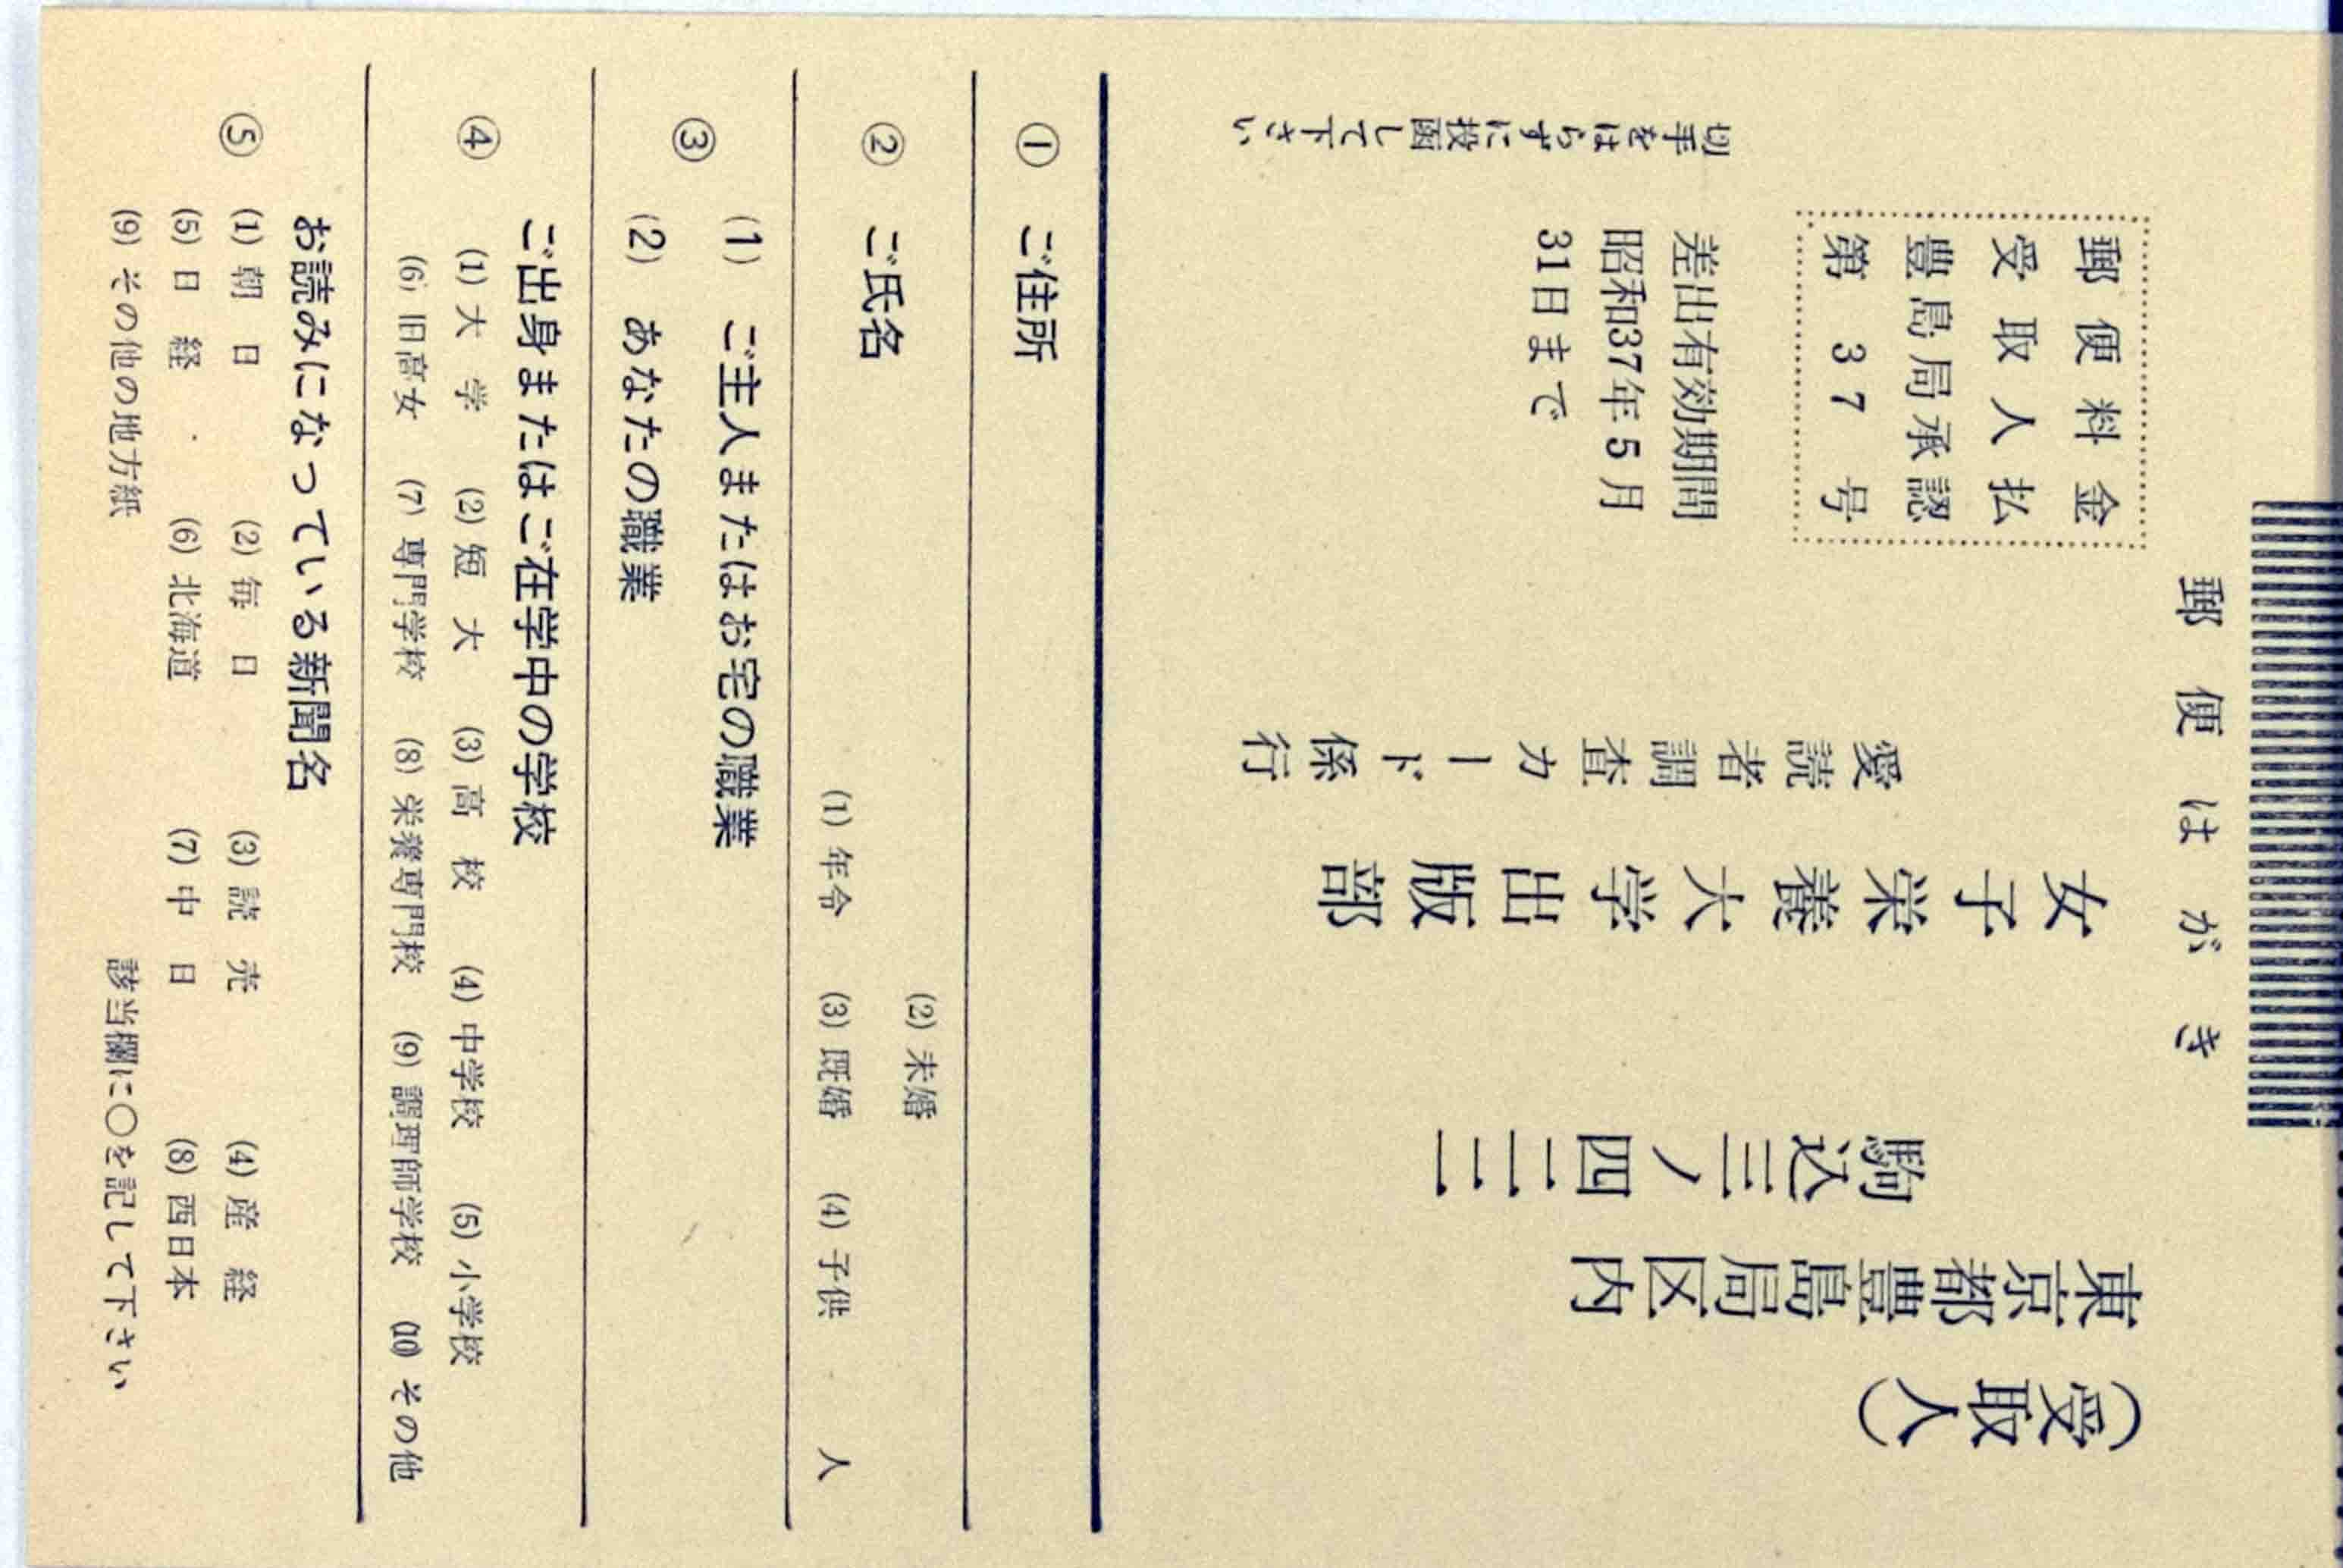 郵便はがき
(受取人)
東京都豊島局区内
駒込三ノ四二二
女子栄養大学出版部
愛読者調査カード係行
郵便料金
受取人払
豊島局承認
第37号
差出有効期間
昭和37年5月
31日まで
切手をはらずに投函して下さい
① ご住所
② ご氏名
(2) 未婚
(1) 年令 (3) 既婚 (4) 子供 人
③ (1) ご主人またはお宅の職業
(2) あなたの職業
④ ご出身またはご在学中の学校
(1) 大学 (2) 短大 (3) 高校 (4) 中学校 (5) 小学校
(6) 旧高女 (7) 専門学校 (8) 栄養専門校 (9) 調理師学校 (10) その他
⑤ お読みになっている新聞名
(1) 朝日 (2) 毎日 (3) 読売 (4) 産経
(5) 日経 (6) 北海道 (7) 中日 (8) 西日本
(9) その他の地方紙 該当欄に○を記して下さい